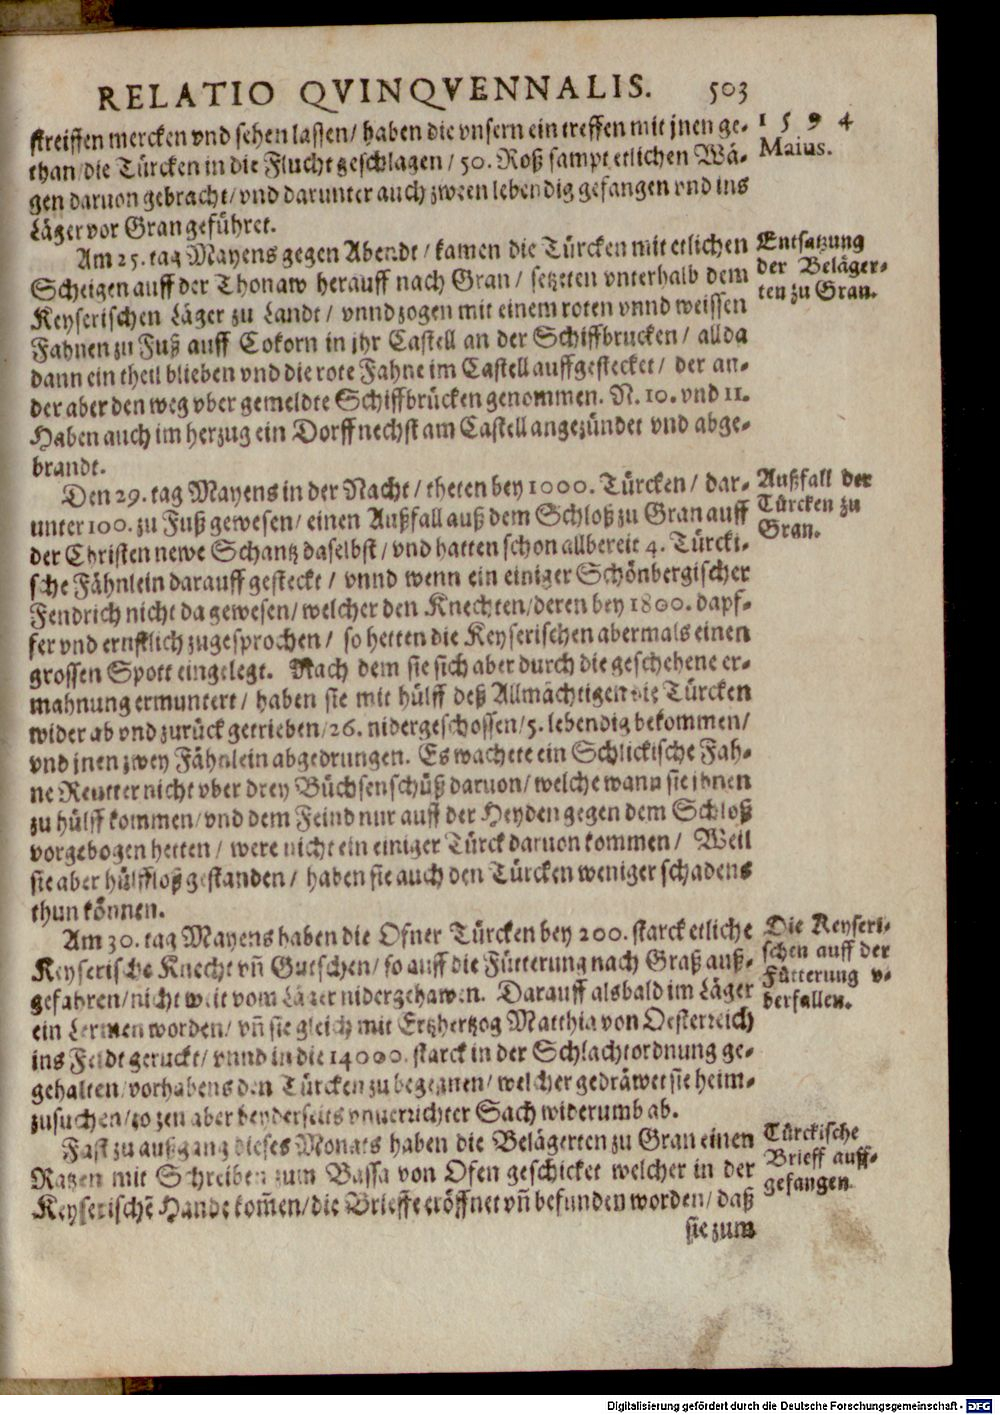 RELATIO QVINQVENNALIS. 503
1594
Maius.
streiffen mercken vnd sehen lassen/ haben die vnsern ein treffen mit jnen ge-
than/die Türcken in die Flucht geschlagen/ 50. Roß sampt etlichen Wä-
gen daruon gebracht/ vnd darunter auch zween lebendig gefangen vnd ins
Läger vor Gran geführet.
Entsatzung
der Beläger-
ten zu Gran.
Am 25. tag Mayens gegen Abendt/ kamen die Türcken mit etlichen
Scheigen auff der Thonaw herauff nach Gran/ setzeten vnterhalb dem
Keyserischen Läger zu Landt/ vnnd zogen mit einem roten vnnd weissen
Fahnen zu Fuß auff Cokorn in jhr Castell an der Schiffbrucken/ allda
dann ein theil blieben vnd die rote Fahne im Castell auffgestecket/ der an-
der aber den weg vber gemeldte Schiffbrücken genommen. N. 10. vnd 11.
Haben auch im herzug ein Dorff nechst am Castell angezündet vnd abge-
brandt.
Außfall der
Türcken zu
Gran.
Den 29. tag Mayens in der Nacht/ theten bey 1000. Türcken/ dar-
unter 100. zu Fuß gewesen/ einen Außfall auß dem Schloß zu Gran auff
der Christen newe Schantz daselbst/ vnd hatten schon allbereit 4. Türcki-
sche Fähnlein darauff gesteckt/ vnnd wenn ein einiger Schönbergischer
Fendrich nicht da gewesen/ welcher den Knechten/ deren bey 1800. dapf-
fer vnd ernstlich zugesprochen/ so hetten die Keyserischen abermals einen
grossen Spott eingelegt. Nach dem sie sich aber durch die geschehene er-
mahnung ermuntert/ haben sie mit hülff deß Allmächtigen die Türcken
wider ab vnd zurück getrieben/ 26. nidergeschossen/ 5. lebendig bekommen/
vnd jnen zwey Fähnlein abgedrungen. Es wachete ein Schlickische Fah-
ne Reutter nicht vber drey Büchsenschüß daruon/ welche wann sie ihnen
zu hülff kommen/ vnd dem Feind nur auff der Heyden gegen dem Schloß
vorgebogen hetten/ were nicht ein einiger Türck daruon kommen/ Weil
sie aber hülffloß gestanden/ haben sie auch den Türcken weniger schadens
thun können.
Die Keyseri-
schen auff der
Fütterung v-
berfallen.
Am 30. tag Mayens haben die Ofner Türcken bey 200. starck etliche
Keyserische Knecht vñ Gutschen/ so auff die Fütterung nach Graß auß-
gefahren/ nicht weit vom Läger nidergehawen. Darauff alsbald im Läger
ein Lermen worden/ vñ sie gleich mit Ertzhertzog Matthia von Oesterreich
ins Feldt geruckt/ vnnd in die 14000. starck in der Schlachtordnung ge-
gehalten/ vorhabens den Türcken zu begegnen/ welcher gedräwet sie heim-
zusuchen/ zo zen aber beyderseits vnuerrichter Sach widerumb ab.
Türckische
Brieff auff-
gefangen.
Fast zu außgang dieses Monats haben die Belägerten zu Gran einen
Ratzen mit Schreiben zum Bassa von Ofen geschicket welcher in der
Keyserischẽ Hande kom̃en/ die Brieffe eröffnet vñ befunden worden/ daß
sie zum
Digitalisierung gefördert durch die Deutsche Forschungsgemeinschaft - DFG